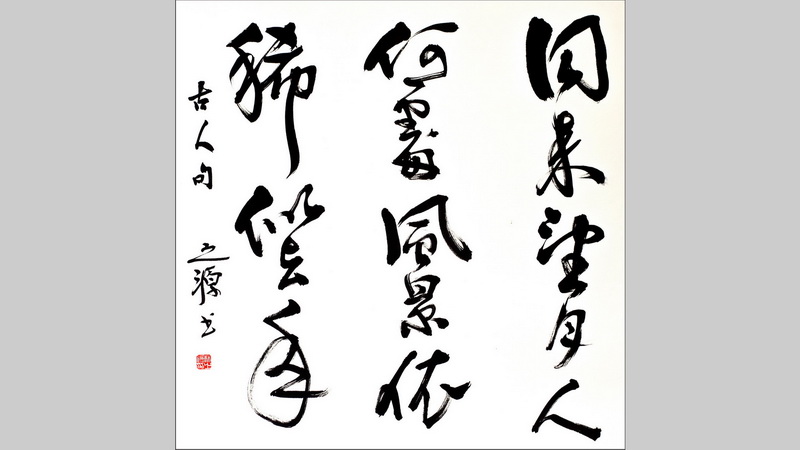 同来望月人
何處風景依
稀似去年
古人句
之源书